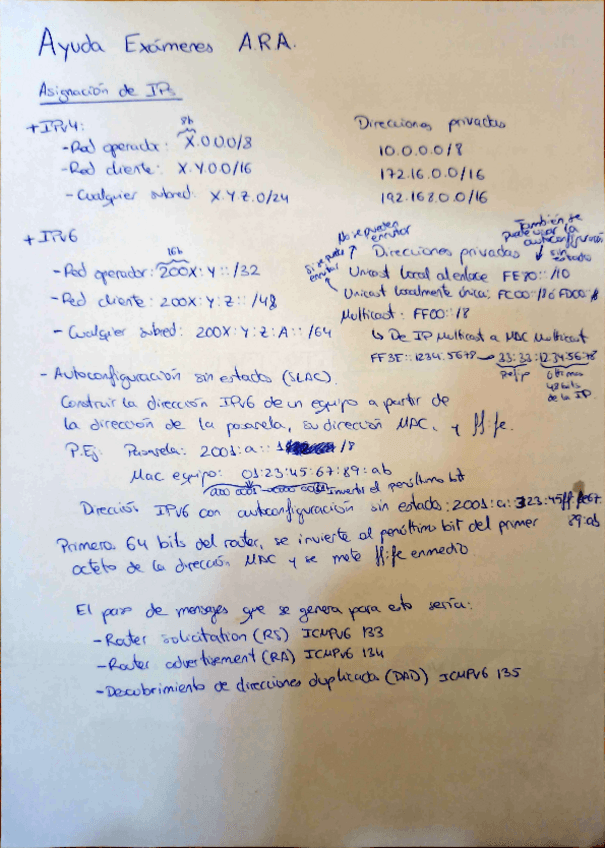 Ayuda Exámenes A.R.A.
Asignación de IPs
+IPv4:
8b
-Red operador: X.0.0.0/8
-Red cliente: X.Y.0.0/16
-Cualquier subred: X.Y.Z.0/24
Direcciones privadas
10.0.0.0/8
172.16.0.0/16
192.168.0.0/16
+IPv6
16b
-Red operador: 200X:Y::/32
-Red cliente: 200X:Y:Z::/48
-Cualquier subred: 200X:Y:Z:A::/64
No se pueden enrutar
Si se puede enrutar
También se puede usar la autoconfiguración sin estado
Direcciones privadas
Unicast Local al enlace FE70::/10
Unicast Localmente única: FC00::/8 FD00::/8
Multicast: FF00::/8
↳ De IP Multicast a MAC Multicast
FF3E::1234:5678 → 33:33:12:34:56:78
Prefijo
últimos
bits
de la IP.
- Autoconfiguración sin estado (SLAC).
Construir la dirección IPv6 de un equipo a partir de
la dirección de la pasarela, su dirección MAC, y ff:fe.
P.Ej: Pasarela: 2001:a::1 /8
Mac equipo: 01:23:45:67:89:ab
Invertir el penúltimo bit
Dirección IPv6 con autoconfiguración sin estado: 2001:a::323:45ff:fe67:
89:ab
Primeros 64 bits del router, se invierte el penúltimo bit del primer
octeto de la dirección MAC y se mete ff:fe enmedio
El paso de mensajes que se genera para esto sería:
-Router solicitation (RS) ICMPv6 133
-Router advertisement (RA) ICMPv6 134
-Descubrimiento de direcciones duplicada (DAD) ICMPv6 135